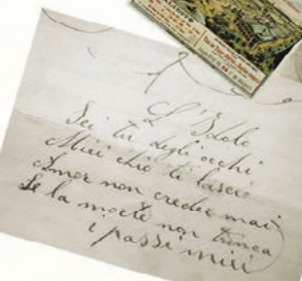 L'Idolo
Sei tu degli occhi
Miei ch'io ti lascio
Amor non creder mai
Se la morte non trunca
i passi miei